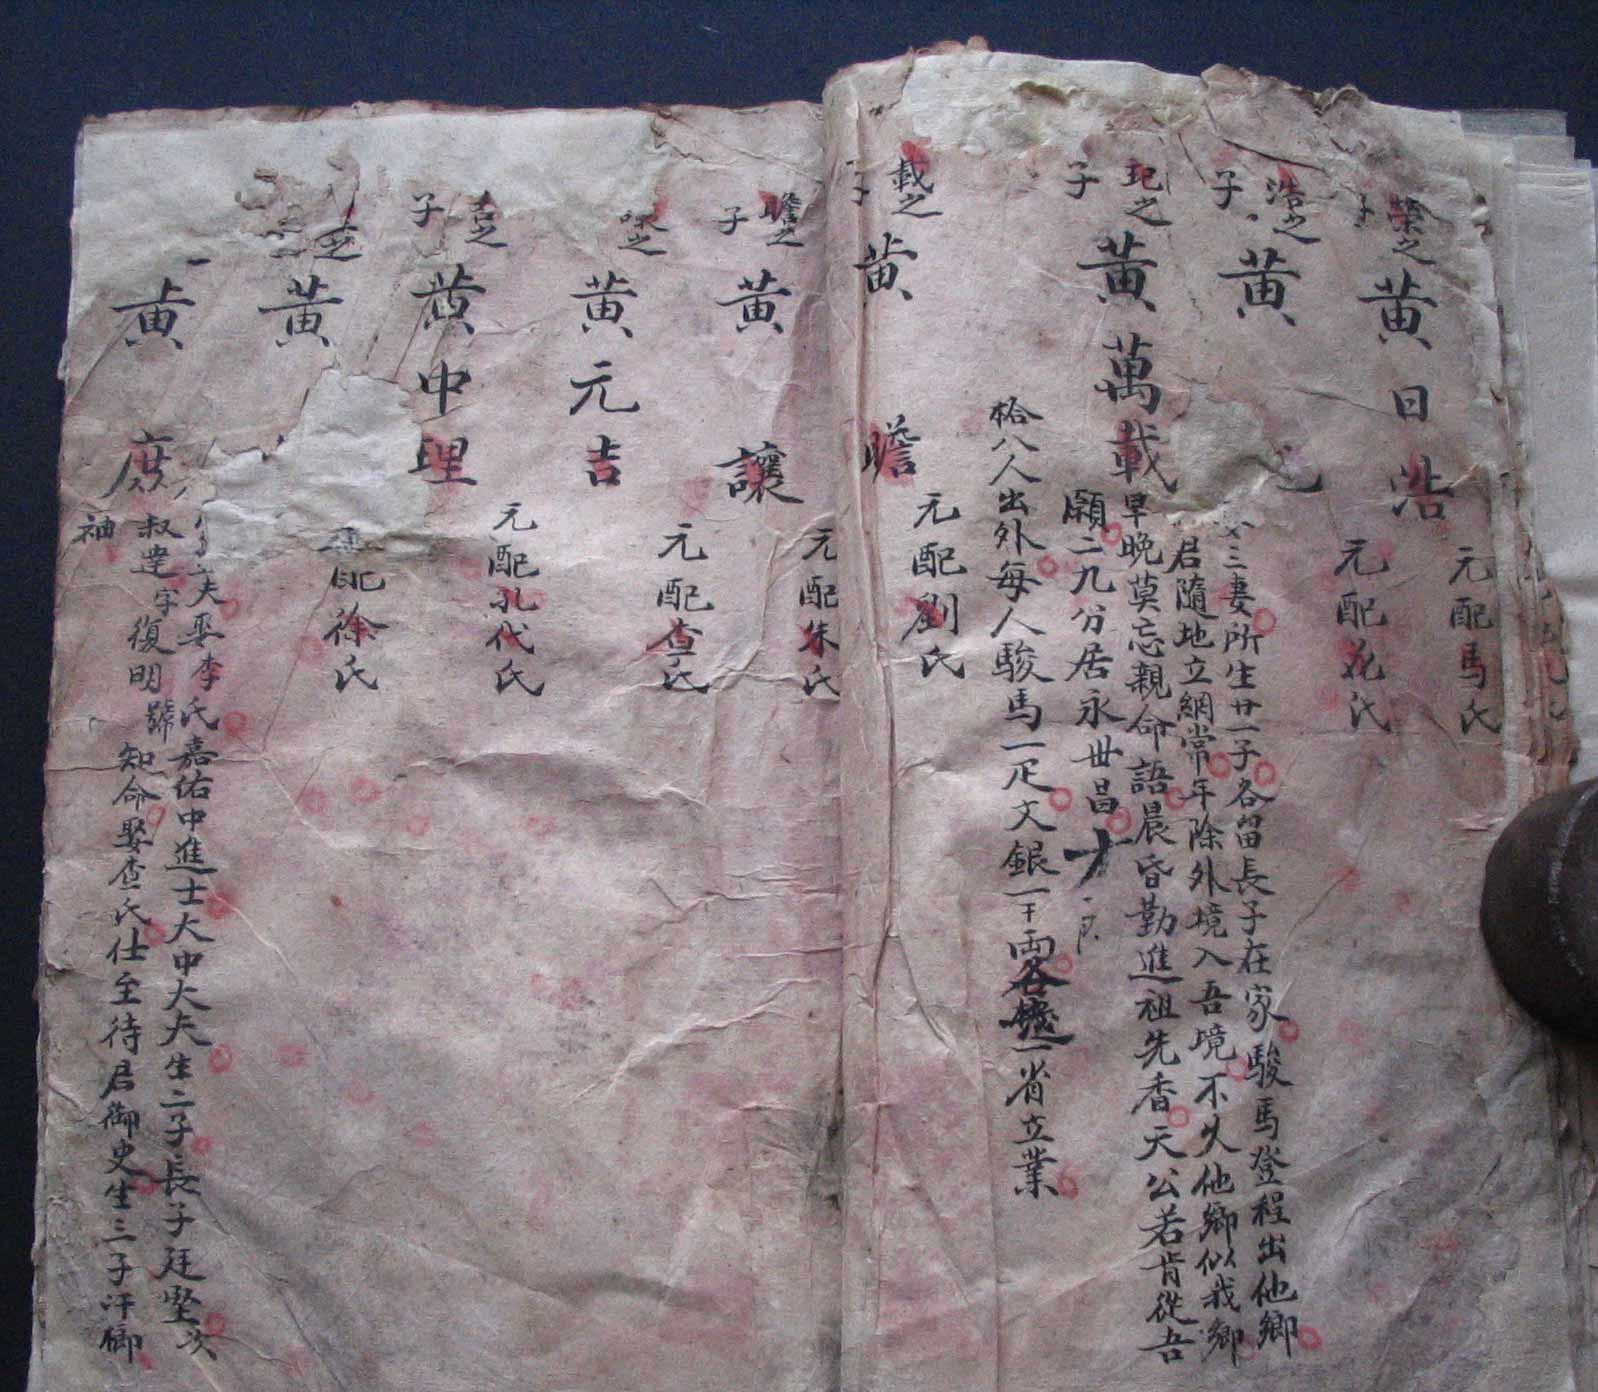 榮之子 黃日浩 元配馬氏
浩之子 黃 元配花氏
三妻所生廿一子各留長子在家駿馬登程出他鄉
君隨地立綱常年除外境入吾境不久他鄉似我鄉
𤣥之子 黃萬載 早晚莫忘親命語晨昏勤進祖先香天公若肯從吾
願二九分居永世昌
拾八人出外每人駿馬一疋文銀一千兩各遶一省立業
載之 黃瞻 元配劉氏
瞻之子 黃讓 元配朱氏
之 黃元吉 元配查氏
吉之子 黃中理 元配孔代氏
黃 配徐氏
黃庶
夫娶李氏嘉佑中進士大中大夫生二子長子廷堅次
叔達字復明號知命娶查氏仕至待君御史生三子汗御
袖